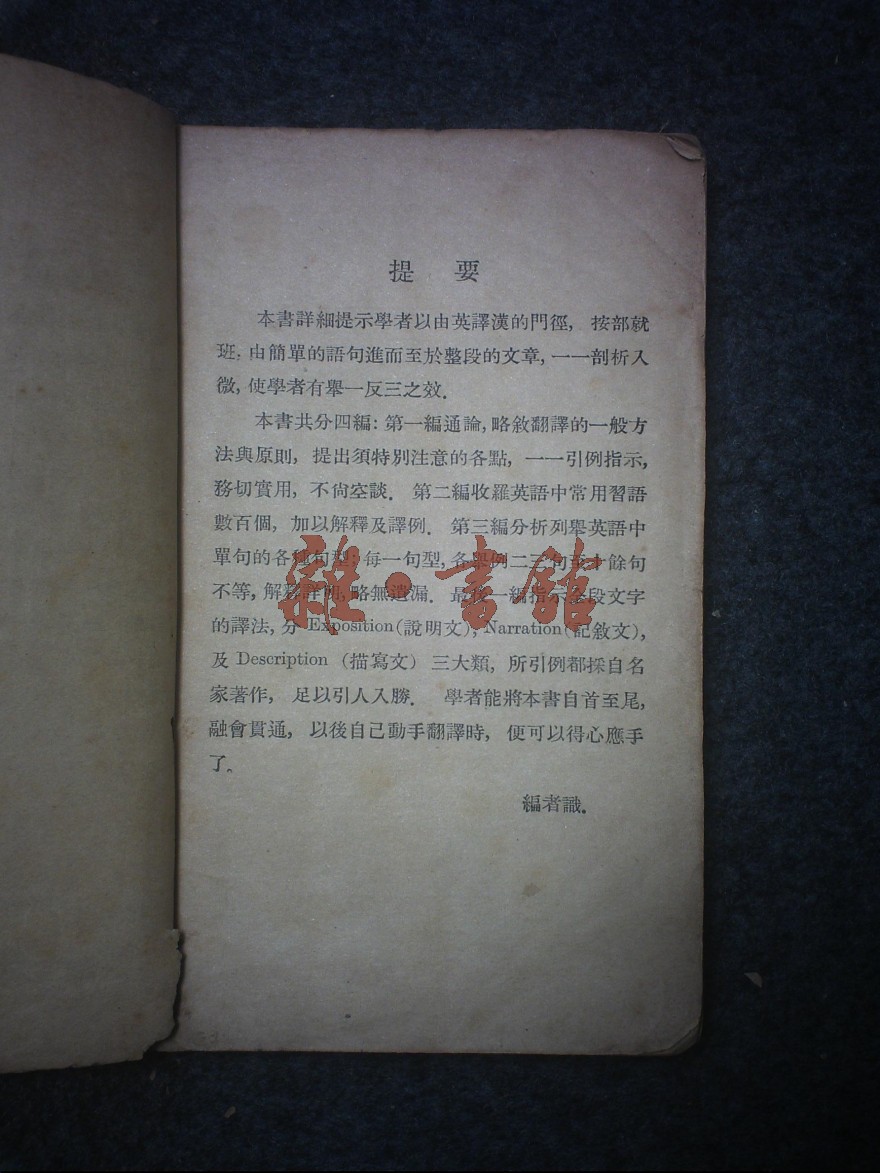 提 要
本書詳細提示學者以由英譯漢的門徑, 按部就
班: 由簡單的語句進而至於整段的文章, 一一剖析入
微, 使學者有舉一反三之效.
本書共分四編: 第一編通論, 略敘翻譯的一般方
法與原則, 提出須特別注意的各點, 一一引例指示,
務切實用, 不尙空談. 第二編收羅英語中常用習語
數百個, 加以解釋及譯例. 第三編分析列舉英語中
單句的各種句型; 每一句型, 各舉例二三句至十餘句
不等, 解釋詳明, 略無遺漏. 最後一編指示全段文字
的譯法, 分 Exposition (說明文), Narration (記敘文),
及 Description (描寫文) 三大類, 所引例都採自名
家著作, 足以引人入勝. 學者能將本書自首至尾,
融會貫通, 以後自己動手翻譯時, 便可以得心應手
了。
編者識.
雜·書館